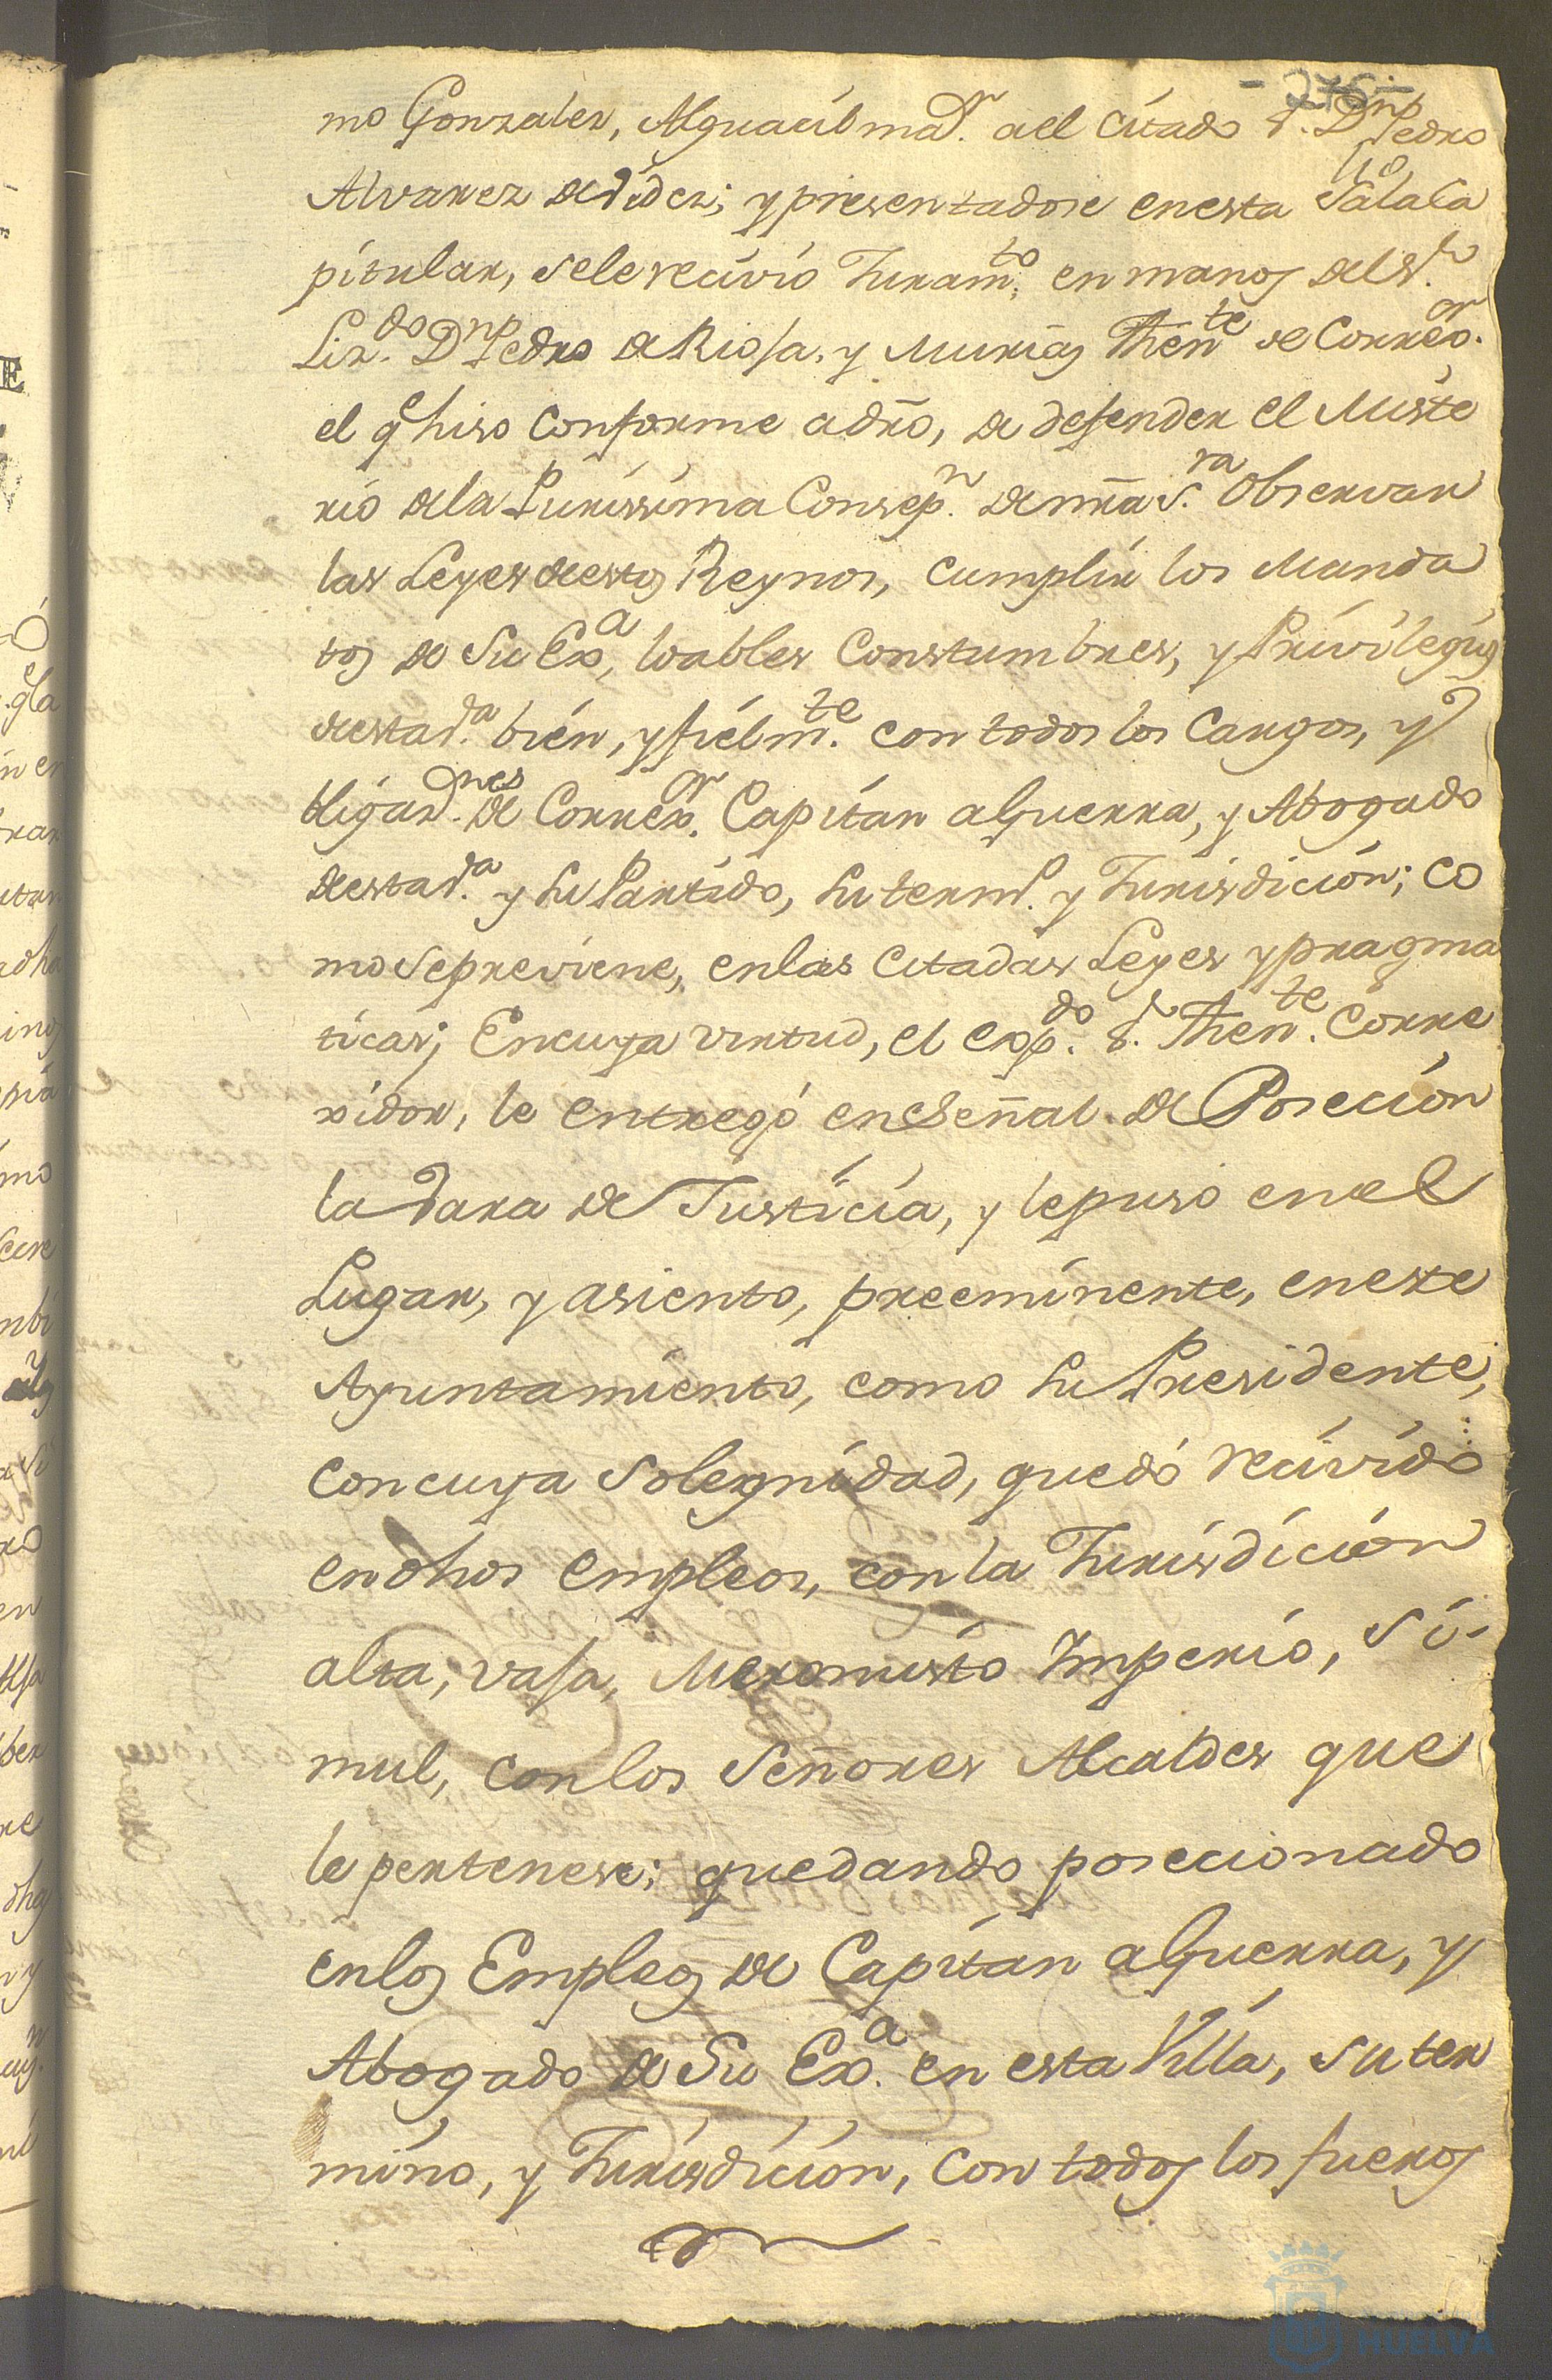 - 276 -
mo Gonzales, Alguacil maor. ael citado Sr. Dn Pedro
Alvarez de Vides; y presentadose en esta Sala Ca
pitular, se le recivio Juramto. en manos del Sr.
Lizdo. Dn Pedro de Riosa, y Murias Thente de Correxor.
el qe hiso conforme a dro, de defender el Miste
rio de la Purissima Consepn. de nra Sra. Observar
las Leyes de estos Reynos, cumplir los Manda
tos de Su Exa, loables Constumbres, y Privilegios
de esta Va. bien, y fielmte. con todos los Cargos, y o
bligaznes. de Correxor. Capitan a Guerra, y Abogado
de esta Va. y su Partido, su termo. y Jurisdicion; co
mo se previene, en las citadas Leyes y pragma
ticas; En cuya virtud, el expdo. Sr. Thente. Corre
xidor, le entregó en Señal de Posecion
la Vara de Justicia, y le puso en el
Lugar, y asiento, preeminente, en este
Ayuntamiento, como su Presidente,
con cuya solegnidad, quedó recivido
en dhos empleos, con la Jurisdicion
alta, vasa, Mero misto Imperio, si-
mul, con los Señores Alcaldes que
le pertenese; quedando posecionado
en los Empleos de Capitan a Guerra, y
Abogado de Su Exa. en esta Villa, su ter
mino, y Jurisdicion, con todos los fueros
HUELVA